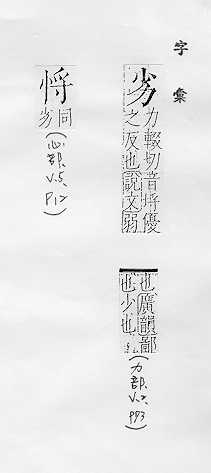 字彙
劣
力輟切音埒優
之反也說文弱
也廣韻鄙
也少也
(力部, V.2, P93)
同
劣
(心部, V.5, P12)